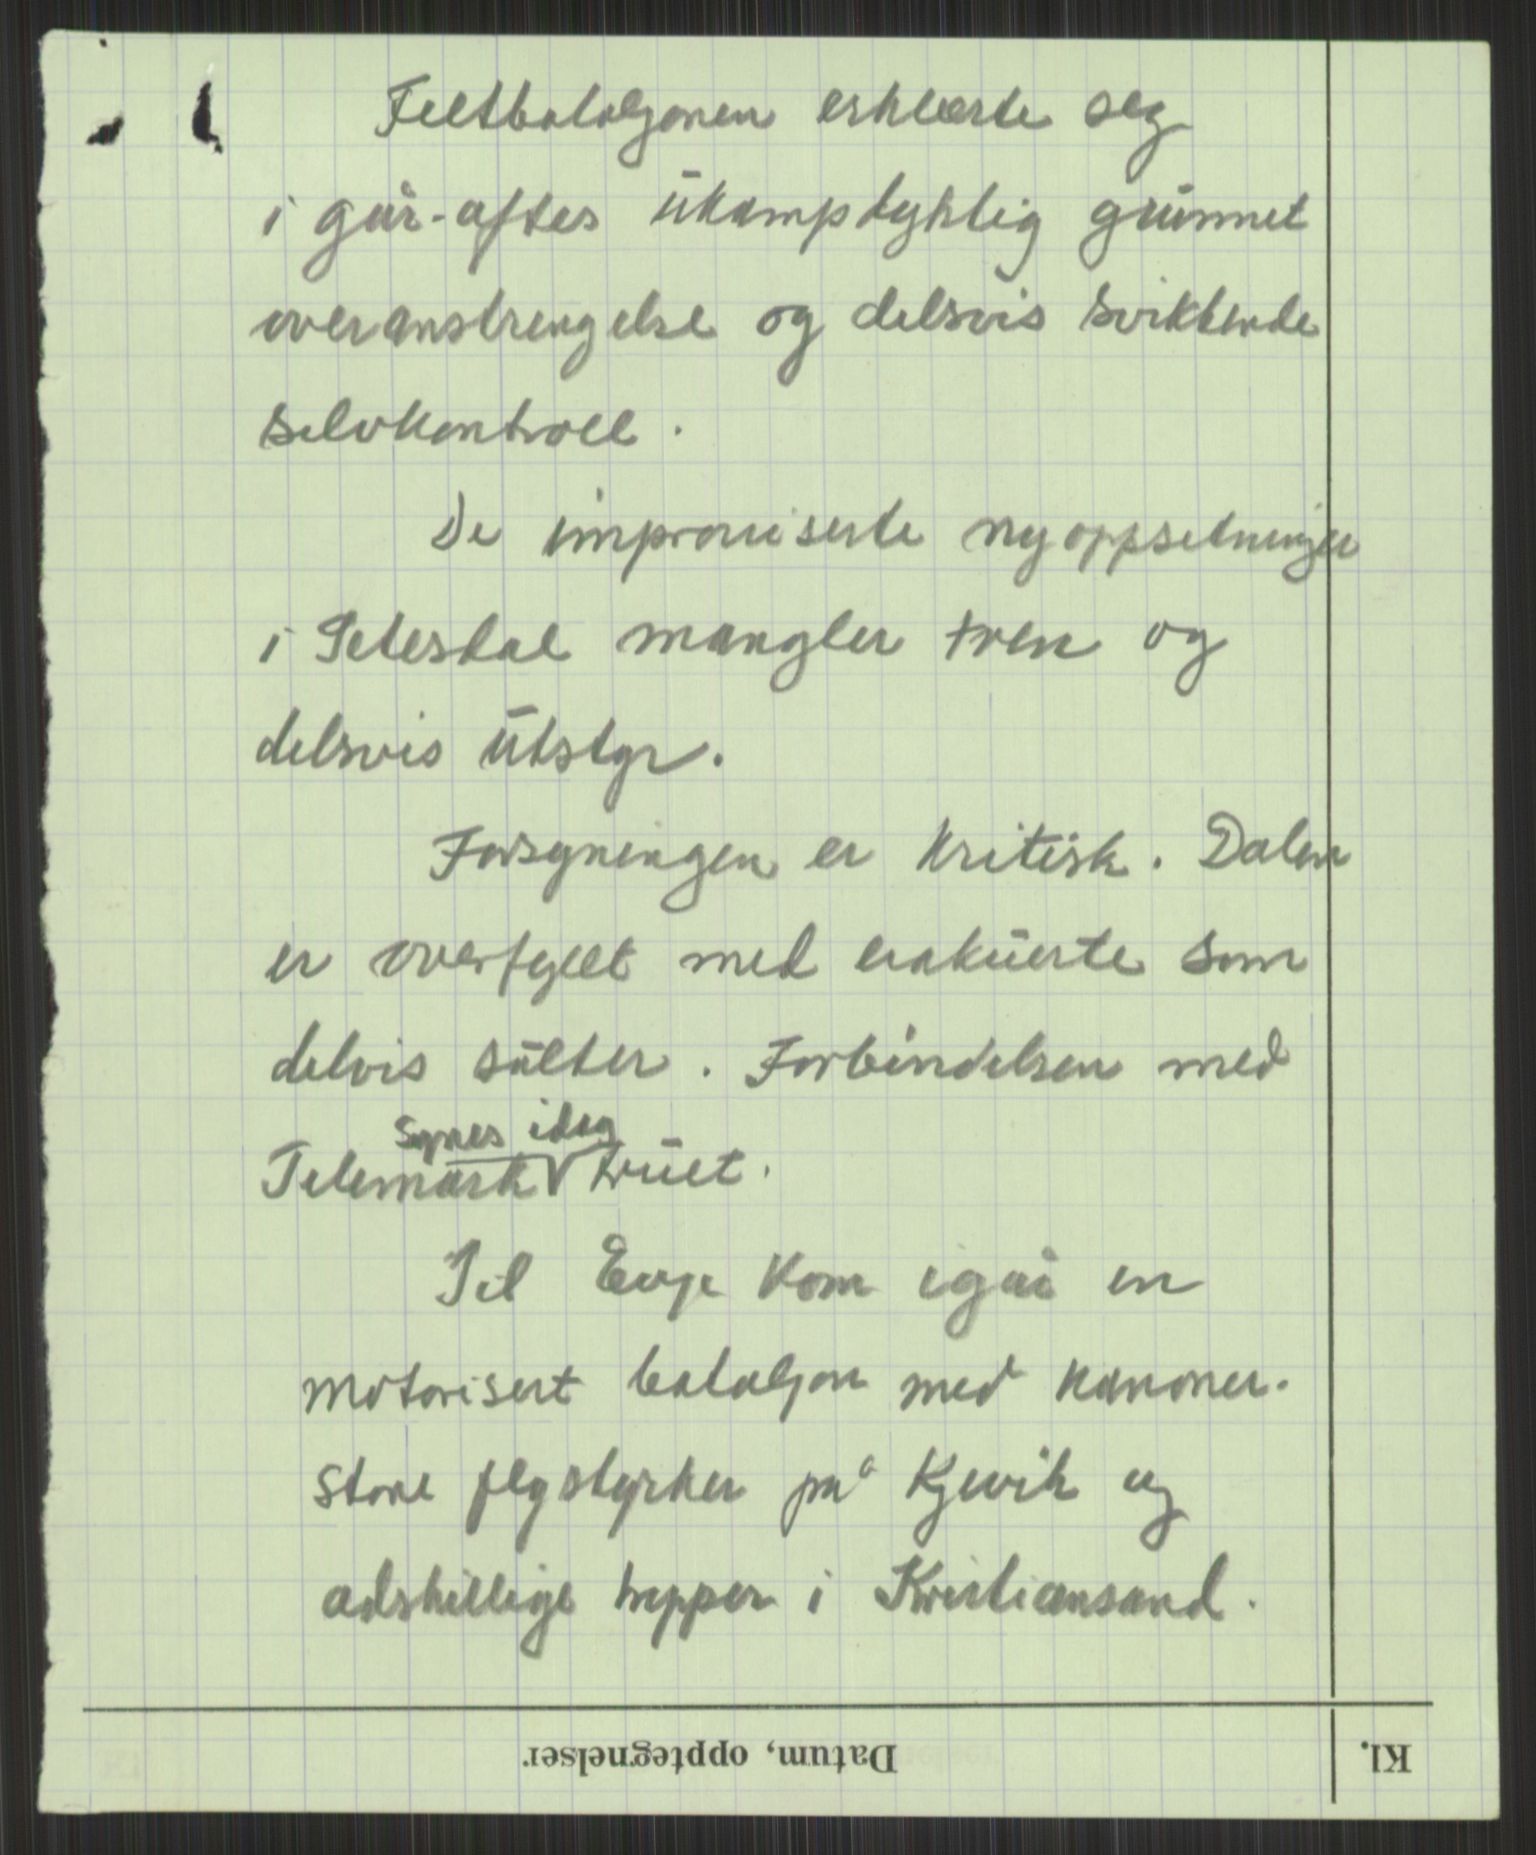 Feltbataljonen erklærte seg
i går-aftes ukampdyktig grunnet
overanstrengelse og delsvis sviktende
selvkontroll.
De improviserte nyoppsetninger
i Setesdal mangler tren og
delsvis utstyr.
Forsyningen er kritisk. Dalen
er overfyllt med evakuerte som
delvis sulter. Forbindelsen med
synes idag
Telemark truet.
Til Evje kom igår en
motorisert bataljon med kanoner.
Store flystyrker på Kjevik og
adskillige tropper i Kristiansand.
Datum, opptegnelser
Kl.